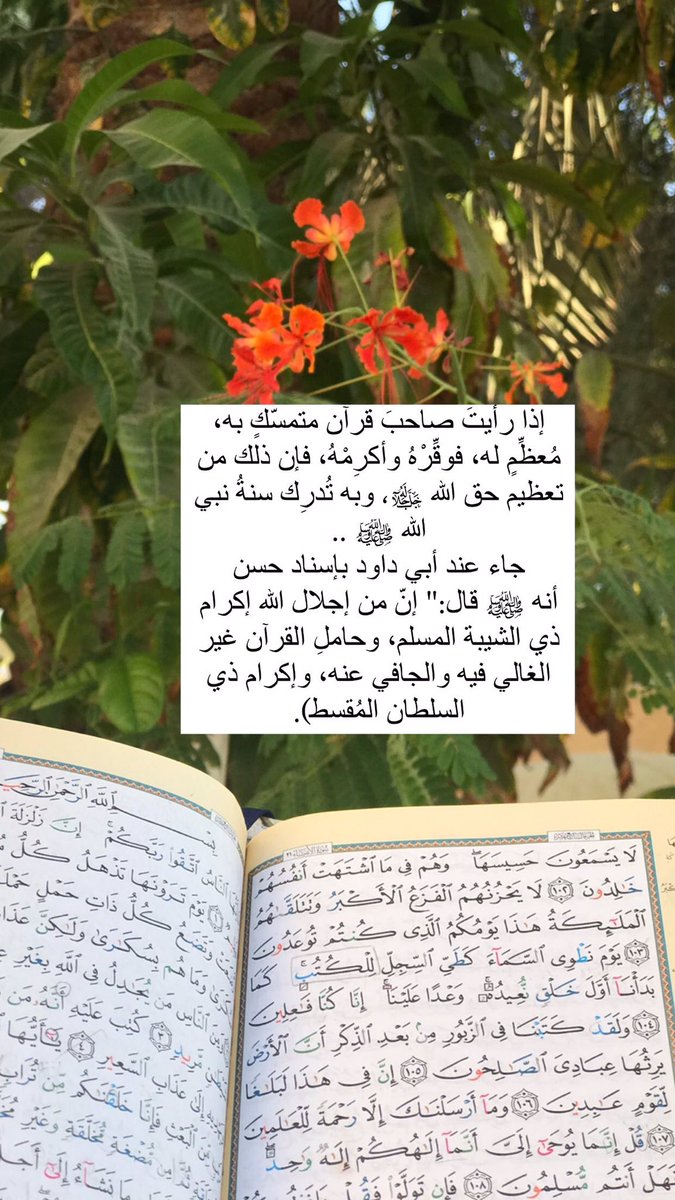 إذا رأيتَ صاحبَ قرآن متمسّكٍ به،
مُعظِّمٍ له، فوقِّرْهُ وأكرِمْهُ، فإن ذلك من
تعظيم حق الله ﷻ، وبه تُدرِك سنةُ نبي
الله ﷺ ..
جاء عند أبي داود بإسناد حسن
أنه ﷺ قال:" إنّ من إجلال الله إكرام
ذي الشيبة المسلم، وحاملِ القرآن غير
الغالي فيه والجافي عنه، وإكرام ذي
السلطان المُقسط).
لَا يَسْمَعُونَ حَسِيسَهَا ۖ وَهُمْ فِي مَا ٱشْتَهَتْ أَنفُسُهُمْ
خَٰلِدُونَ ١٠٢ لَا يَحْزُنُهُمُ ٱلْفَزَعُ ٱلْأَكْبَرُ وَتَتَلَقَّىٰهُمُ
ٱلْمَلَٰٓئِكَةُ هَٰذَا يَوْمُكُمُ ٱلَّذِي كُنتُمْ تُوعَدُونَ
١٠٣ يَوْمَ نَطْوِي ٱلسَّمَآءَ كَطَيِّ ٱلسِّجِلِّ لِلْكُتُبِ ۚ كَمَا
بَدَأْنَآ أَوَّلَ خَلْقٍ نُّعِيدُهُۥ ۚ وَعْدًا عَلَيْنَآ ۚ إِنَّا كُنَّا فَٰعِلِينَ
١٠٤ وَلَقَدْ كَتَبْنَا فِي ٱلزَّبُورِ مِنۢ بَعْدِ ٱلذِّكْرِ أَنَّ ٱلْأَرْضَ
يَرِثُهَا عِبَادِيَ ٱلصَّٰلِحُونَ ١٠٥ إِنَّ فِي هَٰذَا لَبَلَٰغًا
لِّقَوْمٍ عَٰبِدِينَ ١٠٦ وَمَآ أَرْسَلْنَٰكَ إِلَّا رَحْمَةً لِّلْعَٰلَمِينَ
١٠٧ قُلْ إِنَّمَا يُوحَىٰٓ إِلَيَّ أَنَّمَآ إِلَٰهُكُمْ إِلَٰهٌ وَٰحِدٌ ۖ
فَهَلْ أَنتُم مُّسْلِمُونَ ١٠٨ فَإِن تَوَلَّوْا۟ فَقُلْ
بِسْمِ ٱللَّهِ ٱلرَّحْمَٰنِ ٱلرَّحِيمِ
ٱلنَّاسُ ٱتَّقُوا۟ رَبَّكُمْ ۚ إِنَّ زَلْزَلَةَ
يَوْمَ تَرَوْنَهَا تَذْهَلُ كُلُّ
وَتَضَعُ كُلُّ ذَاتِ حَمْلٍ حَمْلَهَا
وَمَا هُم بِسُكَٰرَىٰ وَلَٰكِنَّ عَذَابَ
ٱلنَّاسِ مَن يُجَٰدِلُ فِي ٱللَّهِ بِغَيْرِ
مَّرِيدٍ ٣ كُتِبَ عَلَيْهِ أَنَّهُۥ مَن
إِلَىٰ عَذَابِ ٱلسَّعِيرِ ٤ يَٰٓأَيُّهَا
ٱلْبَعْثِ فَإِنَّا خَلَقْنَٰكُم مِّن تُرَابٍ
مُّضْغَةٍ مُّخَلَّقَةٍ وَغَيْرِ
نَشَآءُ إِلَىٰٓ أَجَلٍ